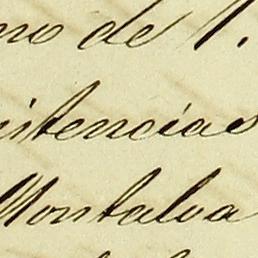 no de 1.
istencias
Montalva